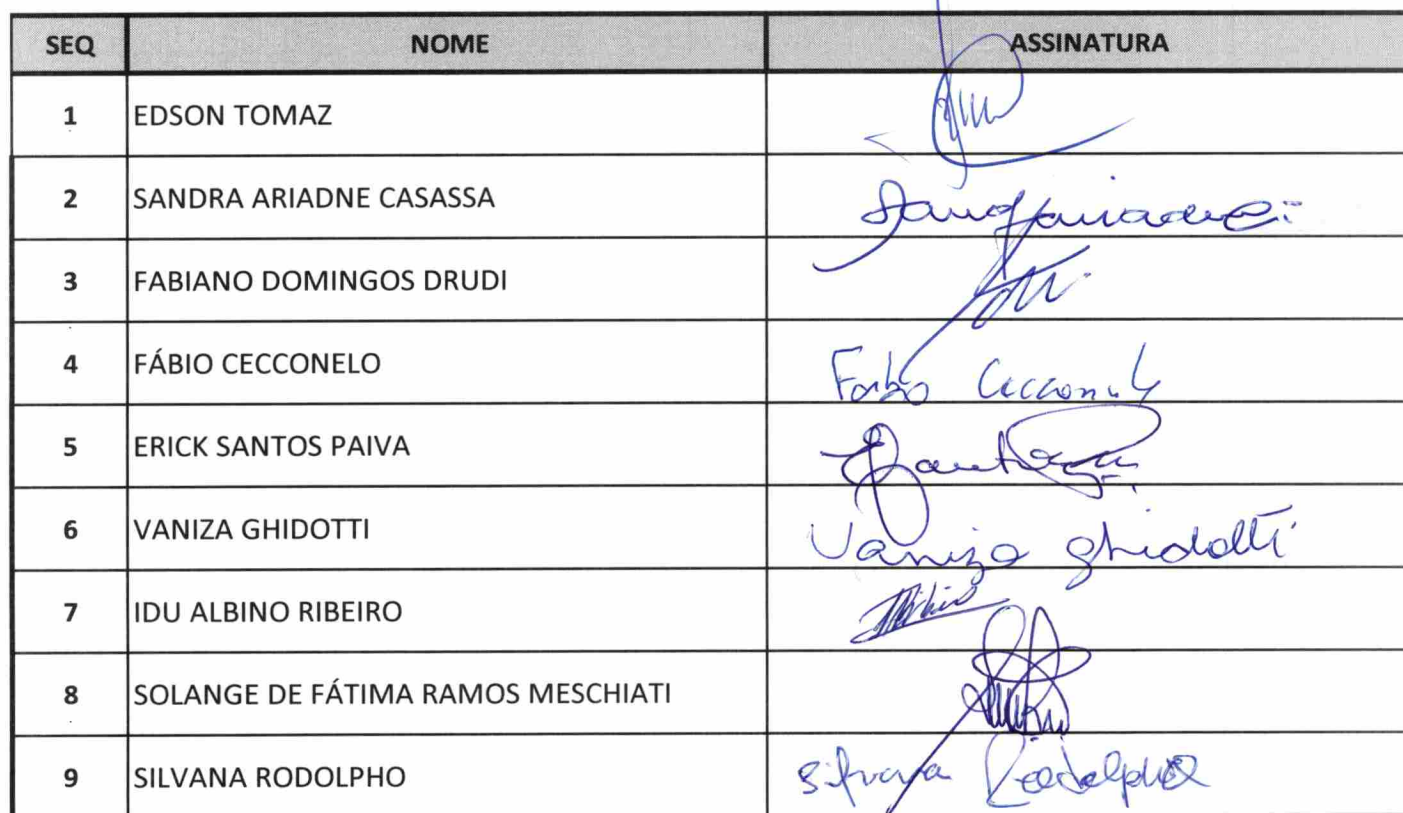 SEQ NOME ASSINATURA
1 EDSON TOMAZ
2 SANDRA ARIADNE CASASSA
3 FABIANO DOMINGOS DRUDI
4 FÁBIO CECCONELO Fabio
5 ERICK SANTOS PAIVA
6 VANIZA GHIDOTTI Vaniza Ghidotti
7 IDU ALBINO RIBEIRO
8 SOLANGE DE FÁTIMA RAMOS MESCHIATI
9 SILVANA RODOLPHO Silvana Rodolpho